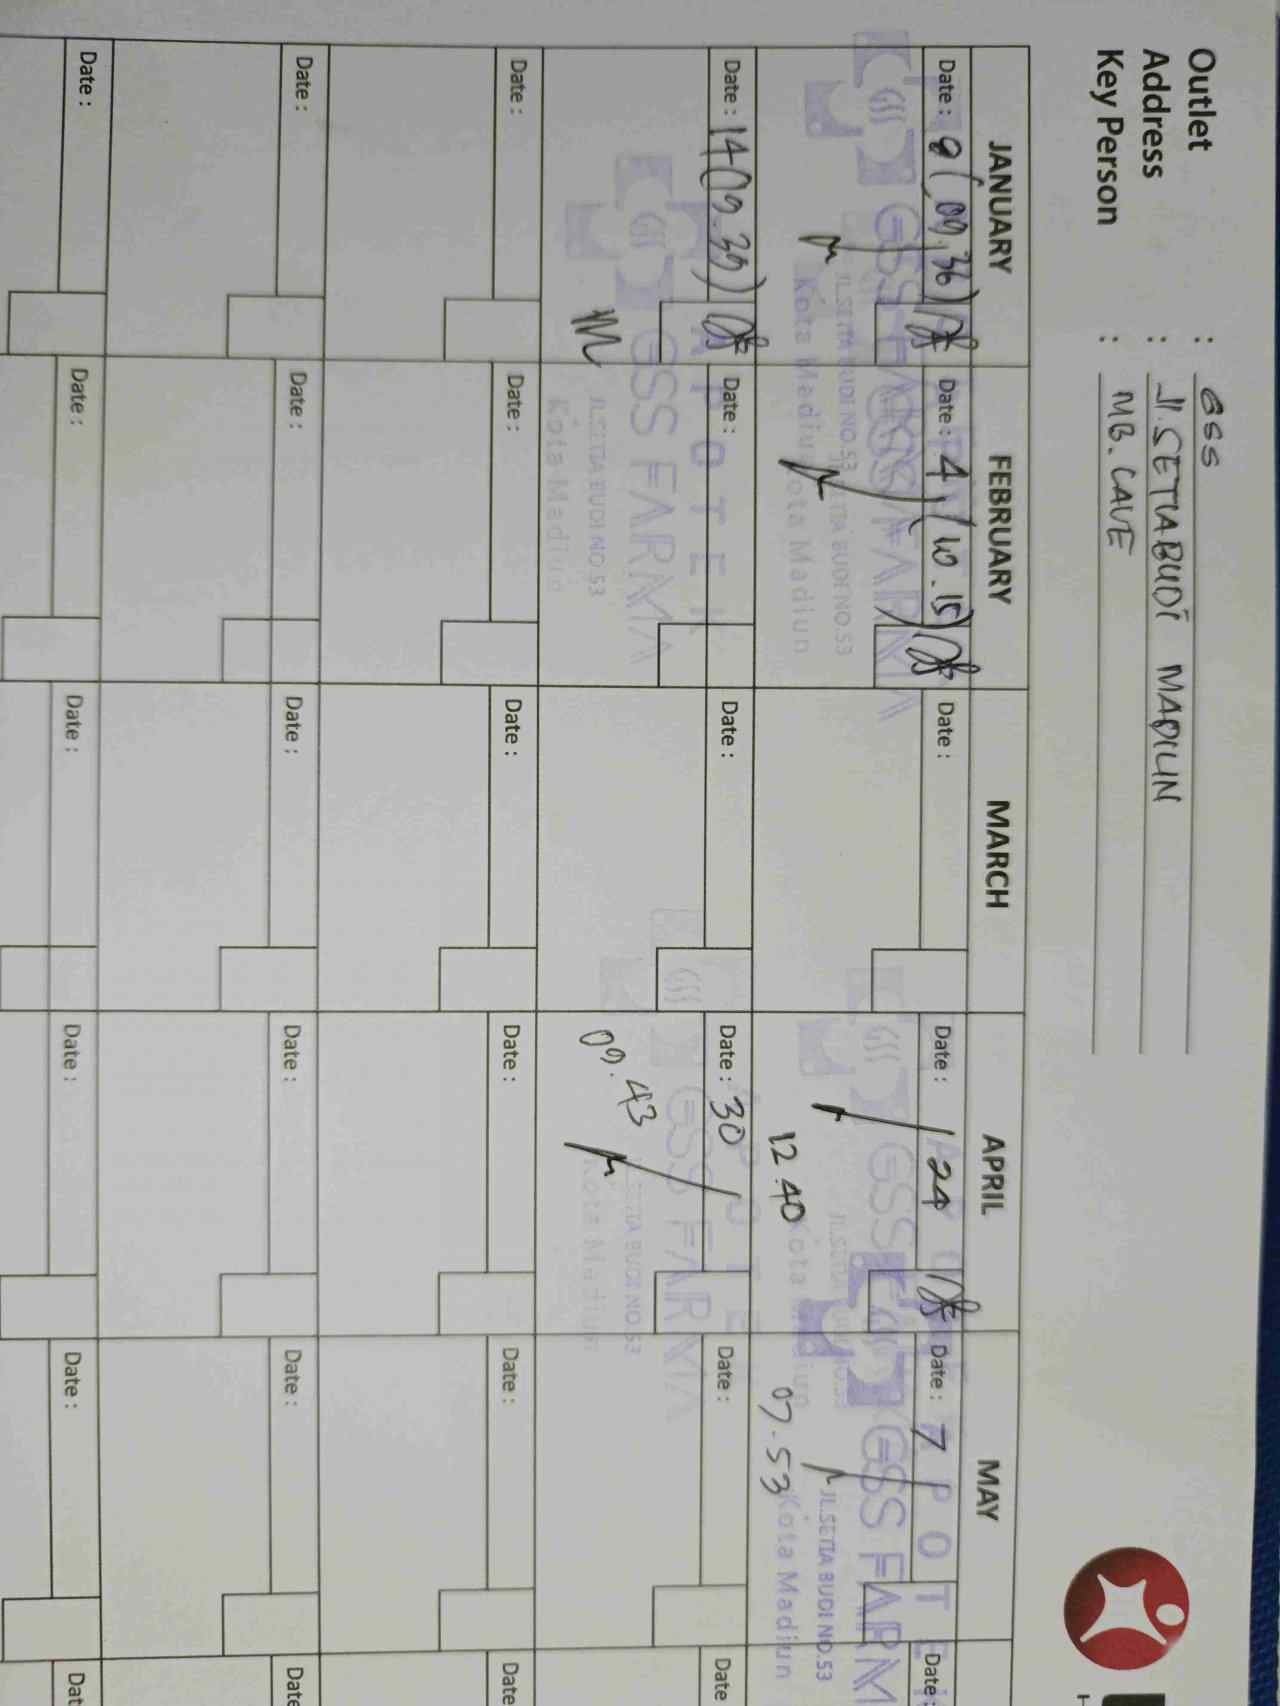 Outlet : GSS
Address : Jl. SETIABUDI MADIUN
Key Person : MB. CAVE
JANUARY FEBRUARY MARCH APRIL MAY
Date : 8 (09.36) Date : 4 (10.15) Date : Date : 24 Date : 7 Date :
APOTEK
GSS FARMA
JL.SETIA BUDI NO.53
Kota Madiun
12 40
07.53
Date : 14 (09.39) Date : Date : Date : 30 Date : Date
APOTEK
GSS FARMA
JL.SETIA BUDI NO.53
Kota Madiun
09.43
Date : Date : Date : Date : Date : Date
Date : Date : Date : Date : Date : Date
Date : Date : Date : Date : Date : Dat